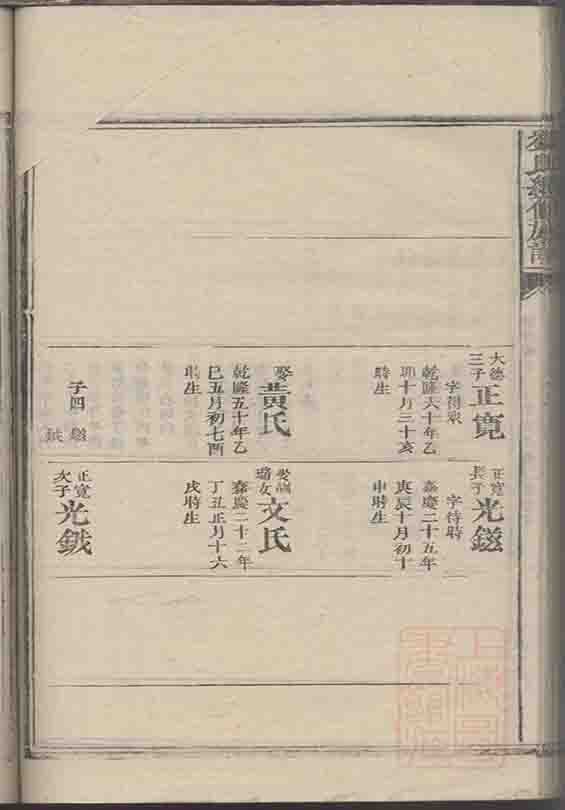 大德
三子
正寬
字得眾
乾隆六十年乙
卯十月三十亥
時生
娶
黃氏
乾隆五十年乙
巳五月初七酉
時生
子四
正寬
長子
光鎡
字待時
嘉慶二十五年
庚辰十月初十
申時生
文氏
嘉慶二十二年
丁丑正月十六
戌時生
正寬
次子
光鉞